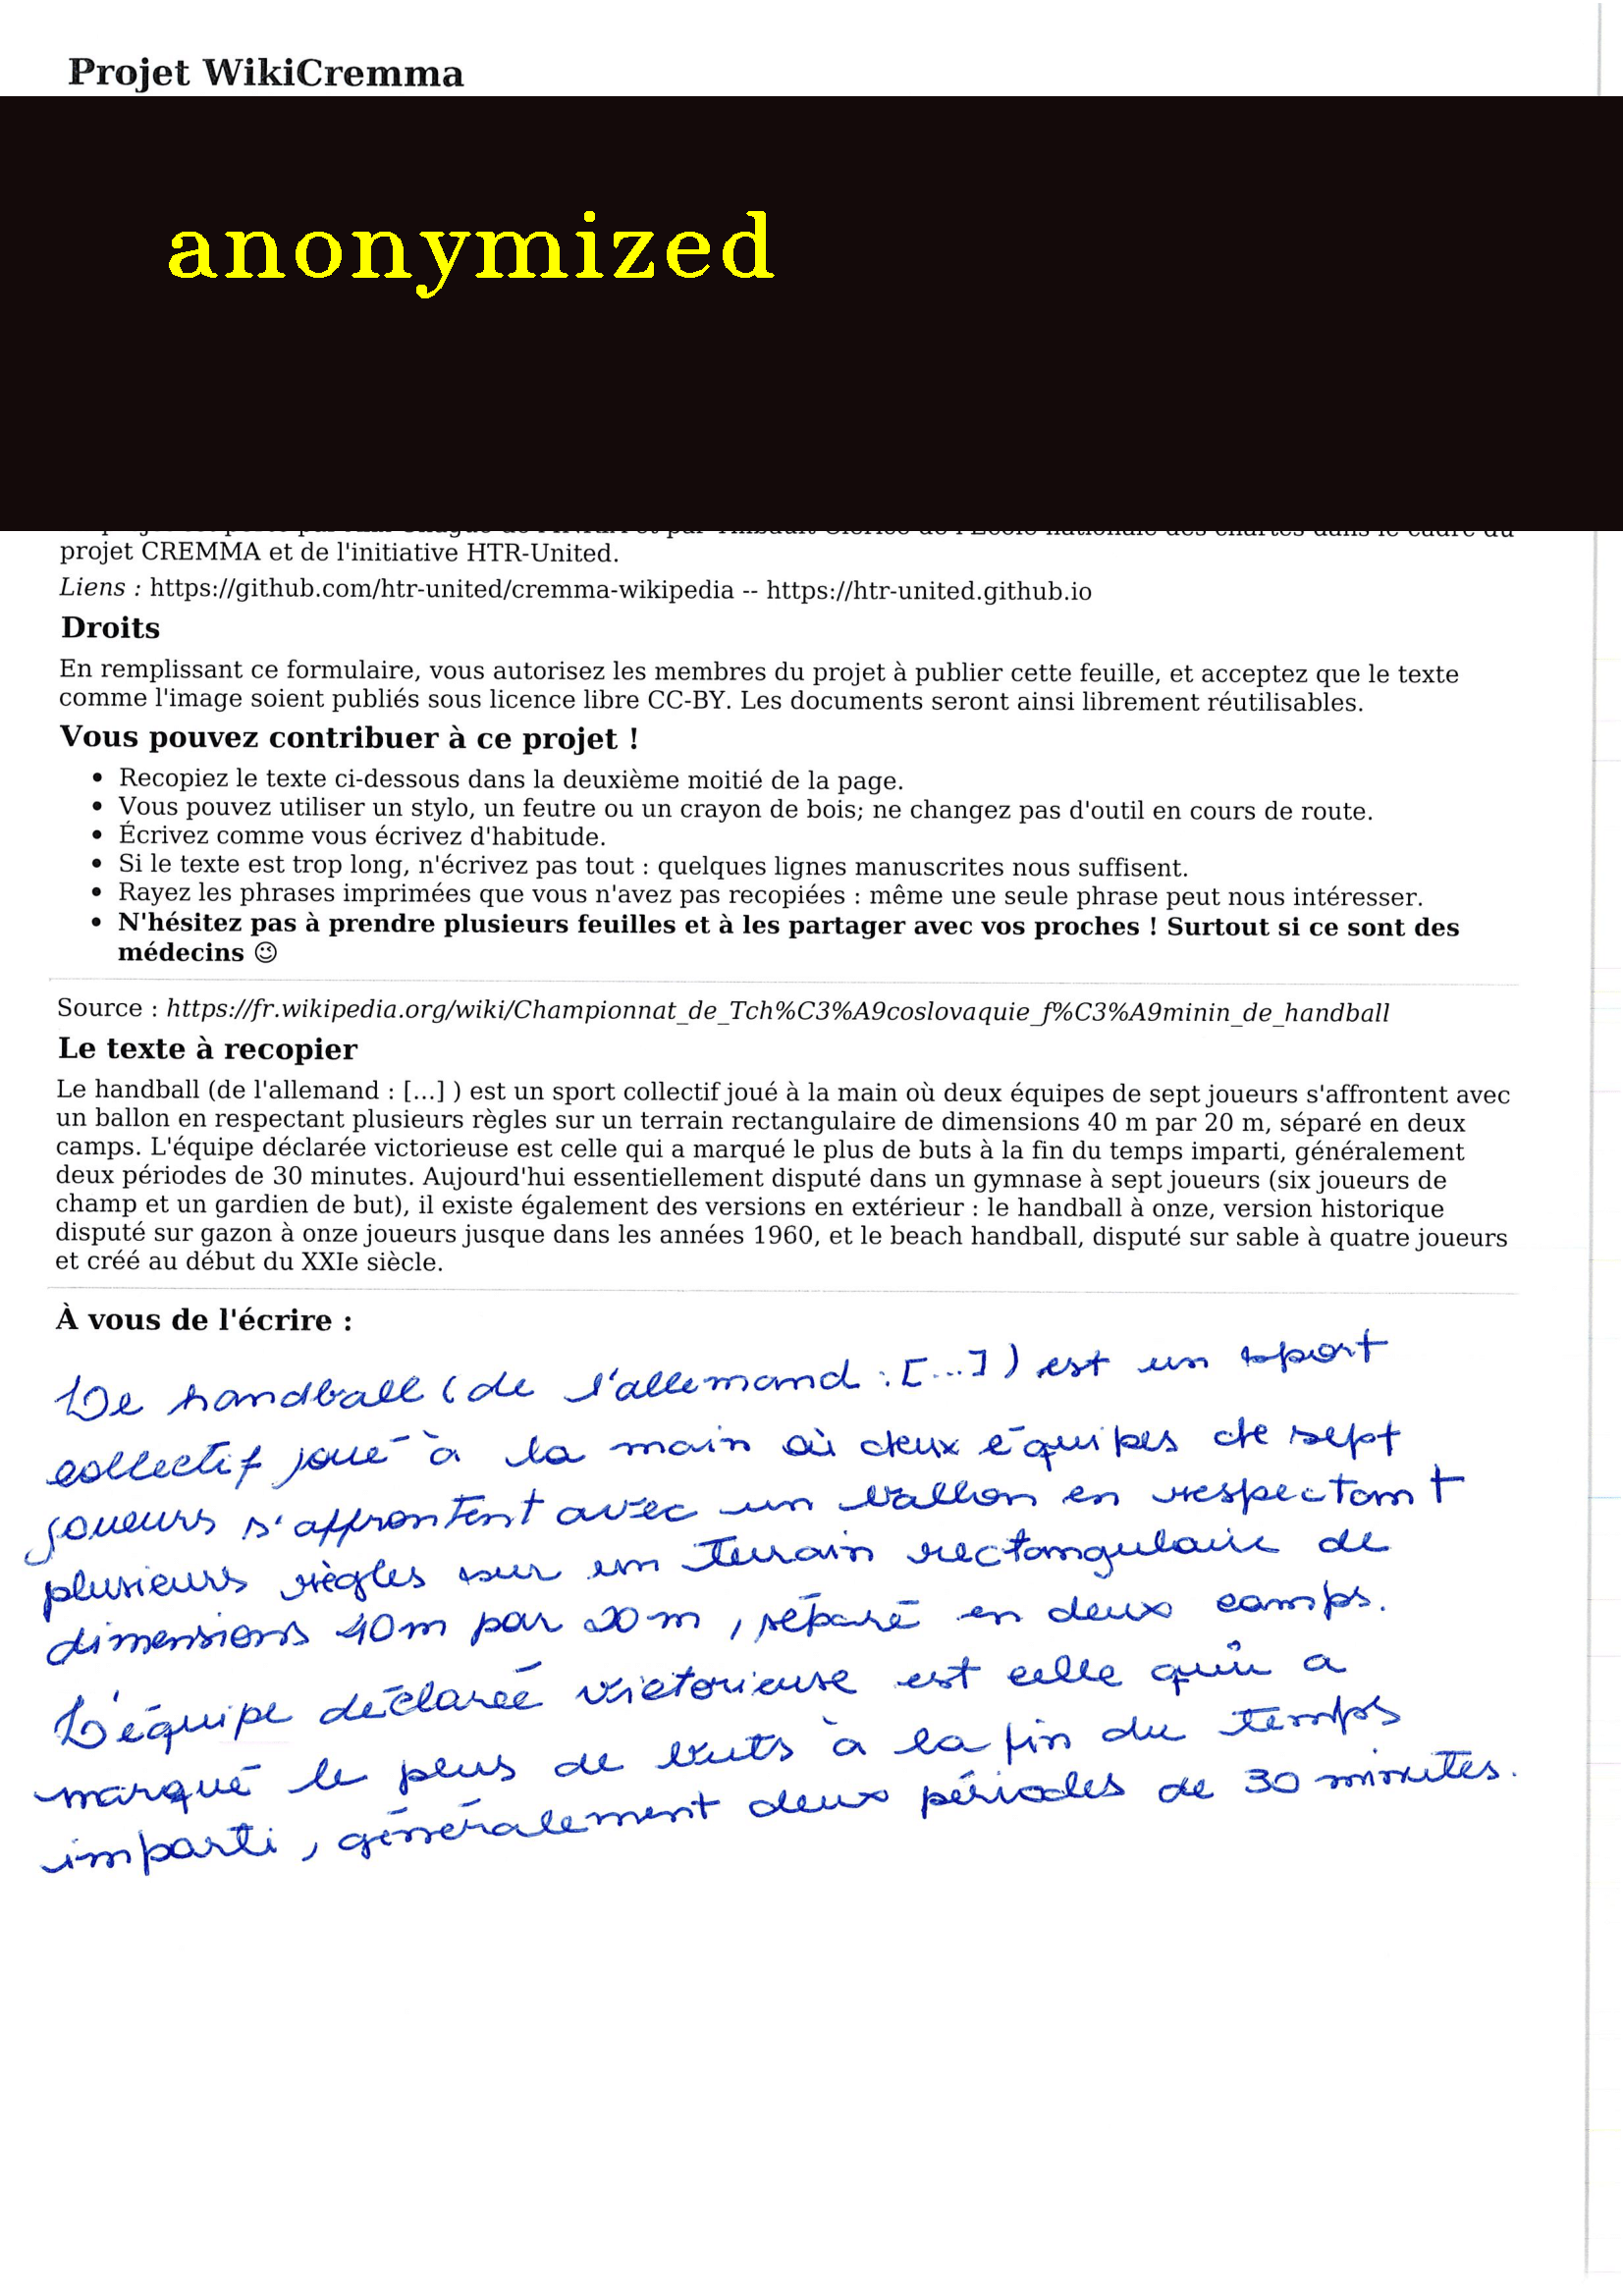 Projet WikiCremma
anonymized
projet CREMMA et de l'initiative HTR-United.
Liens : https://github.com/htr-united/cremma-wikipedia -- https://htr-united.github.io
Droits
En remplissant ce formulaire, vous autorisez les membres du projet à publier cette feuille, et acceptez que le texte
comme l'image soient publiés sous licence libre CC-BY. Les documents seront ainsi librement réutilisables.
Vous pouvez contribuer à ce projet !
• Recopiez le texte ci-dessous dans la deuxième moitié de la page.
• Vous pouvez utiliser un stylo, un feutre ou un crayon de bois; ne changez pas d'outil en cours de route.
• Écrivez comme vous écrivez d'habitude.
• Si le texte est trop long, n'écrivez pas tout : quelques lignes manuscrites nous suffisent.
• Rayez les phrases imprimées que vous n'avez pas recopiées : même une seule phrase peut nous intéresser.
• N'hésitez pas à prendre plusieurs feuilles et à les partager avec vos proches ! Surtout si ce sont des
médecins 😉
Source : https://fr.wikipedia.org/wiki/Championnat_de_Tch%C3%A9coslovaquie_f%C3%A9minin_de_handball
Le texte à recopier
Le handball (de l'allemand : [...] ) est un sport collectif joué à la main où deux équipes de sept joueurs s'affrontent avec
un ballon en respectant plusieurs règles sur un terrain rectangulaire de dimensions 40 m par 20 m, séparé en deux
camps. L'équipe déclarée victorieuse est celle qui a marqué le plus de buts à la fin du temps imparti, généralement
deux périodes de 30 minutes. Aujourd'hui essentiellement disputé dans un gymnase à sept joueurs (six joueurs de
champ et un gardien de but), il existe également des versions en extérieur : le handball à onze, version historique
disputé sur gazon à onze joueurs jusque dans les années 1960, et le beach handball, disputé sur sable à quatre joueurs
et créé au début du XXIe siècle.
À vous de l'écrire :
Le handball (de l'allemand : [...]) est un sport
collectif joué à la main où deux équipes de sept
joueurs s'affrontent avec un ballon en respectant
plusieurs règles sur un terrain rectangulaire de
dimensions 40m par 20m, séparé en deux camps.
L'équipe déclarée victorieuse est celle qui a
marqué le plus de buts à la fin du temps
imparti, généralement deux périodes de 30 minutes.